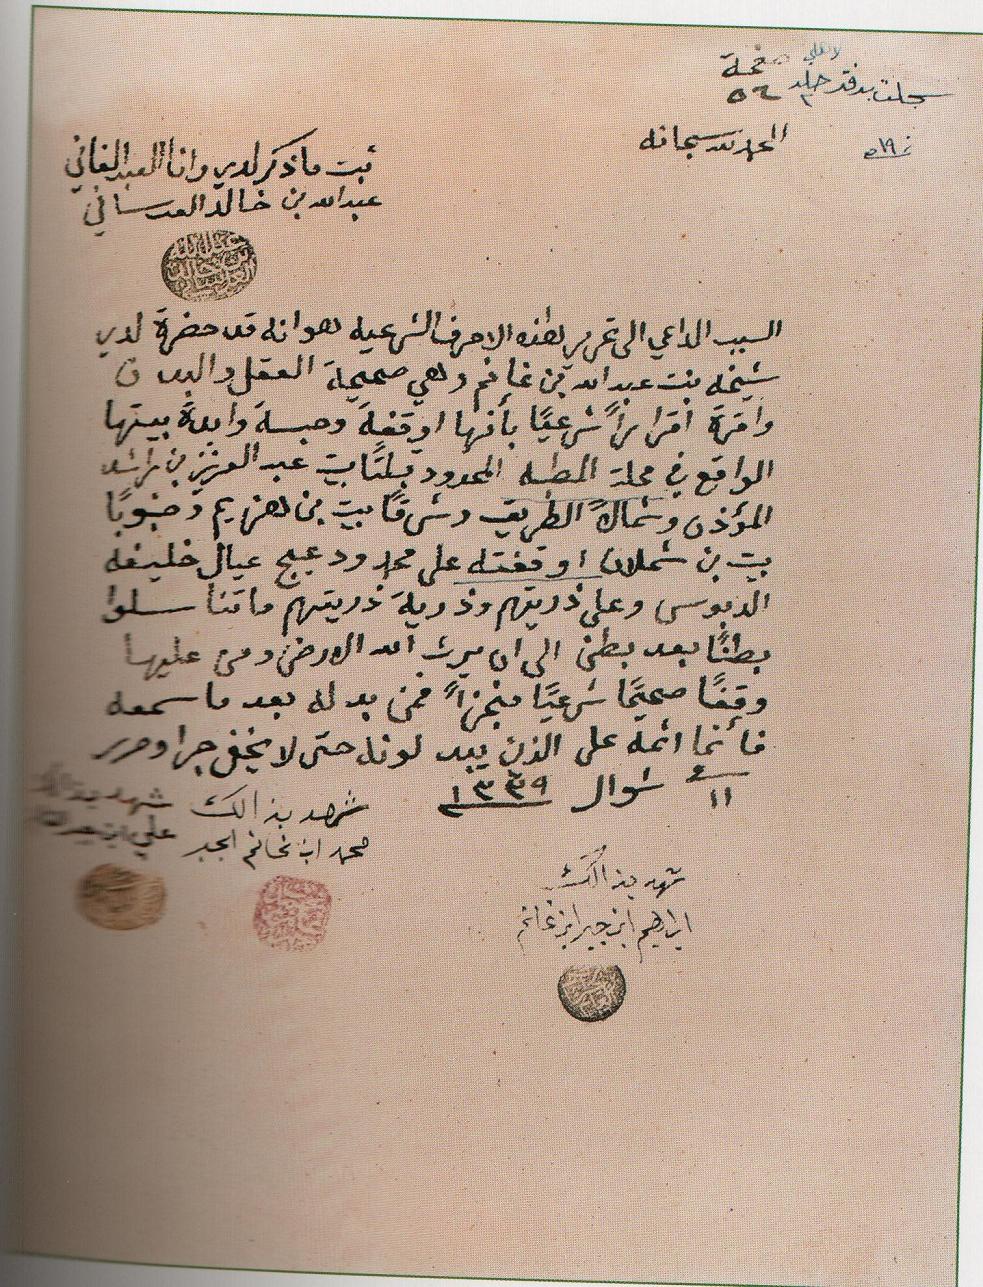 صفحة
سجلت بدفتر جلد ٢ ٥٤
نمرة ١٩
الحمد لله سبحانه
ثبت ما ذكر لدي وانا العبد الفاني
عبدالله بن خالد العدساني
السبب الداعي الى تحرير هذه الاحرف الشرعيه هو انه قد حضرة لدي
شيخه بنت عبد الله بن غانم وهي صحيحة العقل والبدن
واقرة اقراراً شرعيًا بأنها اوقفة وحبسة وابدة بيتها
الواقع في محلة المطبه المحدود قبلتًا بيت عبد العزيز بن راشد
المؤذن وشمالاً الطريق وشرقًا بيت بن هزيم وجنوبًا
بيت بن شملان اوقفته على محمد ودعيج عيال خليفه
الدبوسي وعلى ذريتهم وذرية ذريتهم ما تناسلوا
بطنًا بعد بطن الى ان يرث الله الارض ومن عليها
وقفًا صحيحًا شرعيًا منجزاً فمن بدله بعد ما سمعه
فأنما اثمه على الذين يبدلونه حتى لا يخفى جرا وحرر
١١ شوال ١٣٣٩
شهد بذالك
محمد ابن غانم الجبر
شهد بذالك
علي ابن
شهد بذالك
ابراهيم ابن جبر ابن غانم